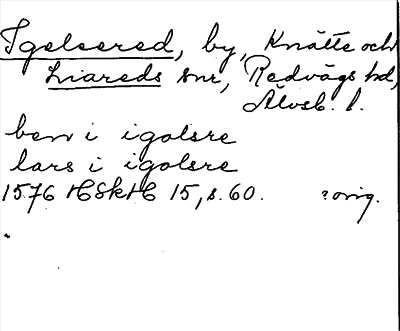 Igelsered, by, Knätte och
Liareds snr, Redvägs hd,
Älvsb. l.
ben i igolsre
lars i igolsre
1576 HSkHC 15, s. 60. ? orig.